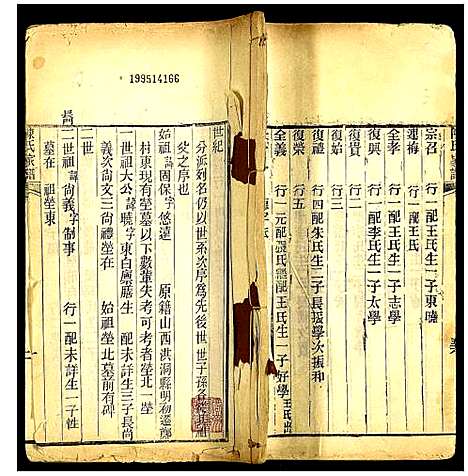 宗召 行一配王氏生一子東曦
連梅 行一配王氏
全孝 行一配王氏生一子志學
復興 行一配李氏生一子太學
復貴 行二
復始 行三
復禮 行四配朱氏生二子長振學次振和
復榮 行五
全義 行一元配裴氏繼配王氏生一子好學
199514166
世紀
分派列名仍以世系次序為先後世世子孫
史之序也
始祖 諱固保字悠遠 原籍山西洪洞縣明初遷
村東現有塋墓以下數輩失考可考者塋北一塋
一世祖大公諱曉字東白廩膳生 配未詳生三子長尚
義次尚文三尚禮塋在 始祖塋北墓前有碑
二世
二世祖諱尚義字制事 行一配未詳生一子性
墓在 祖塋東
陳氏家譜